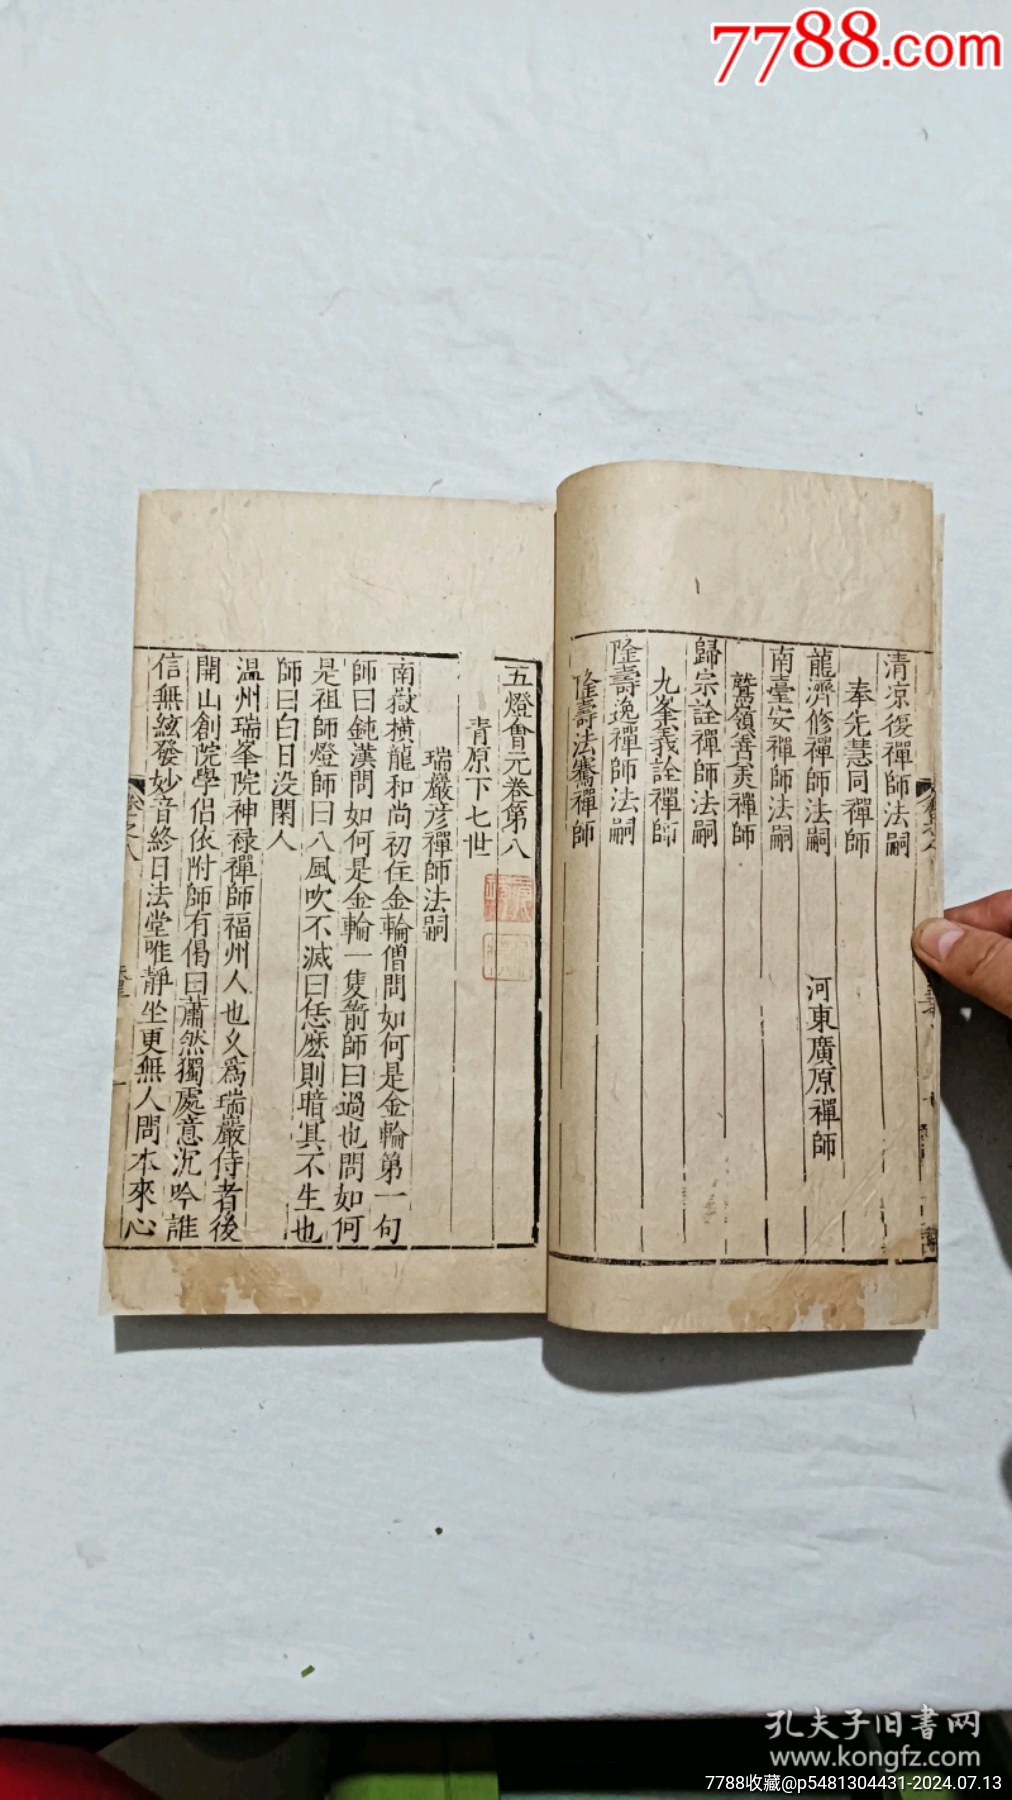 7788.com
清凉復禪師法嗣
奉先慧同禪師
龍濟修禪師法嗣
河東廣原禪師
南臺安禪師法嗣
鷲嶺善美禪師
歸宗詮禪師法嗣
九峯義詮禪師
隆壽逸禪師法嗣
隆壽法騫禪師
五燈會元卷第八
青原下七世
瑞巖彦禪師法嗣
南嶽橫龍和尚初住金輪僧問如何是金輪第一句
師曰鈍漢問如何是金輪一隻箭師曰過也問如何
是祖師燈師曰八風吹不滅曰恁麽則暗冥不生也
師曰白日没閑人
温州瑞峯院神禄禪師福州人也乆爲瑞巖侍者後
開山創院學侣依附師有偈曰蕭然獨處意沉吟誰
信無絃發妙音終日法堂唯靜坐更無人問本來心
卷之八
孔夫子旧書网
www.kongfz.com
7788收藏@p5481304431-2024.07.13